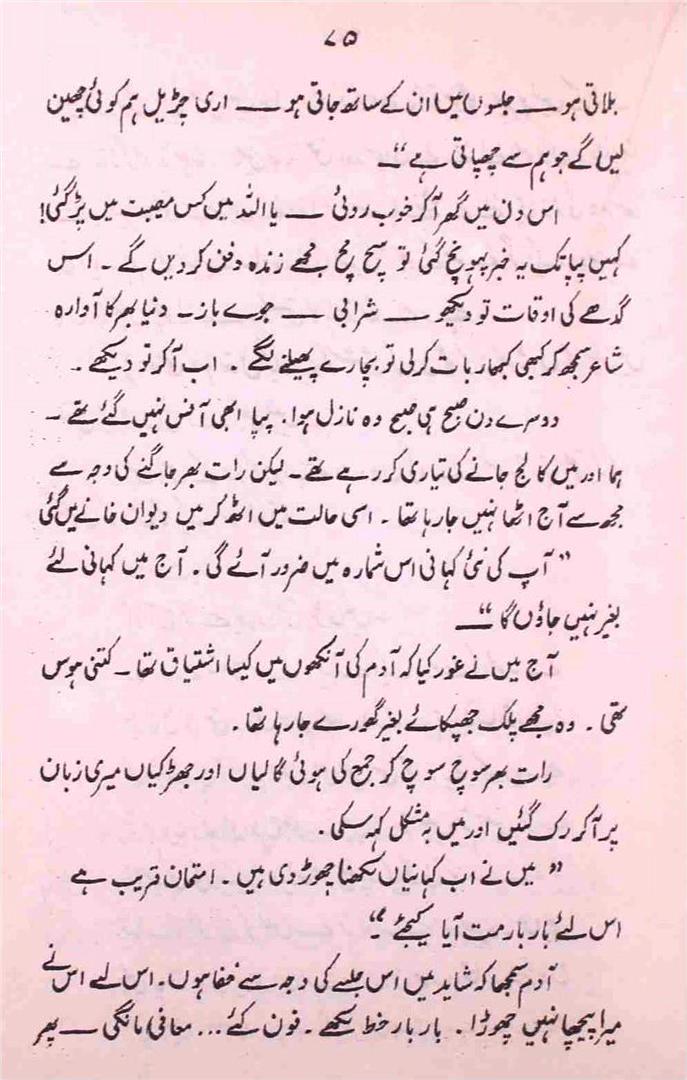 ۷۵
بلاتی ہو ــــ جلسوں میں ان کے ساتھ جاتی ہو ــــ اری چڑیل ہم کوئی چھین
لیں گے جو ہم سے چھپاتی ہے “ــ
اس دن میں گھر آ کر خوب روئی ــــ یا اللہ میں کس مصیبت میں پڑ گئی!
کہیں پپا تک یہ خبر پہونچ گئی تو سچ مچ مجھے زندہ دفن کر دیں گے ۔ اس
گدھے کی اوقات تو دیکھو ــــ شرابی ــــ جوے باز ۔ دنیا بھر کا آوارہ
شاعر سمجھ کر کبھی کبھار بات کر لی تو بچارے پھیلنے لگے ۔ اب آ کر تو دیکھے ۔
دوسرے دن صبح ہی صبح وہ نازل ہوا ۔ پپا ابھی آفس نہیں گئے تھے ۔
ہما اور میں کالج جانے کی تیاری کر رہے تھے ۔ لیکن رات بھر جاگنے کی وجہ سے
مجھ سے آج اٹھا نہیں جا رہا تھا ۔ اسی حالت میں اٹھ کر میں دیوان خانے میں گئی
” آپ کی نئی کہانی اس شمارہ میں ضرور آئے گی ۔ آج میں کہانی لئے
بغیر نہیں جاؤں گا “ــــ
آج میں نے غور کیا کہ آدم کی آنکھوں میں کیسا اشتیاق تھا ۔ کتنی ہوس
تھی ۔ وہ مجھے پلک جھپکائے بغیر گھورے جا رہا تھا ۔
رات بھر سوچ سوچ کر جمع کی ہوئی گالیاں اور جھڑکیاں میری زبان
پر آ کر رک گئیں اور میں بہ مشکل کہہ سکی ۔
” میں نے اب کہانیاں لکھنا چھوڑ دی ہیں ۔ امتحان قریب ہے
اس لئے بار بار مت آیا کیجئے ۔“
آدم سمجھا کہ شاید میں اس جلسے کی وجہ سے خفا ہوں ۔ اس لیے اس نے
میرا پیچھا نہیں چھوڑا ۔ بار بار خط لکھے ۔ فون کئے ... معافی مانگی ــــ پھر